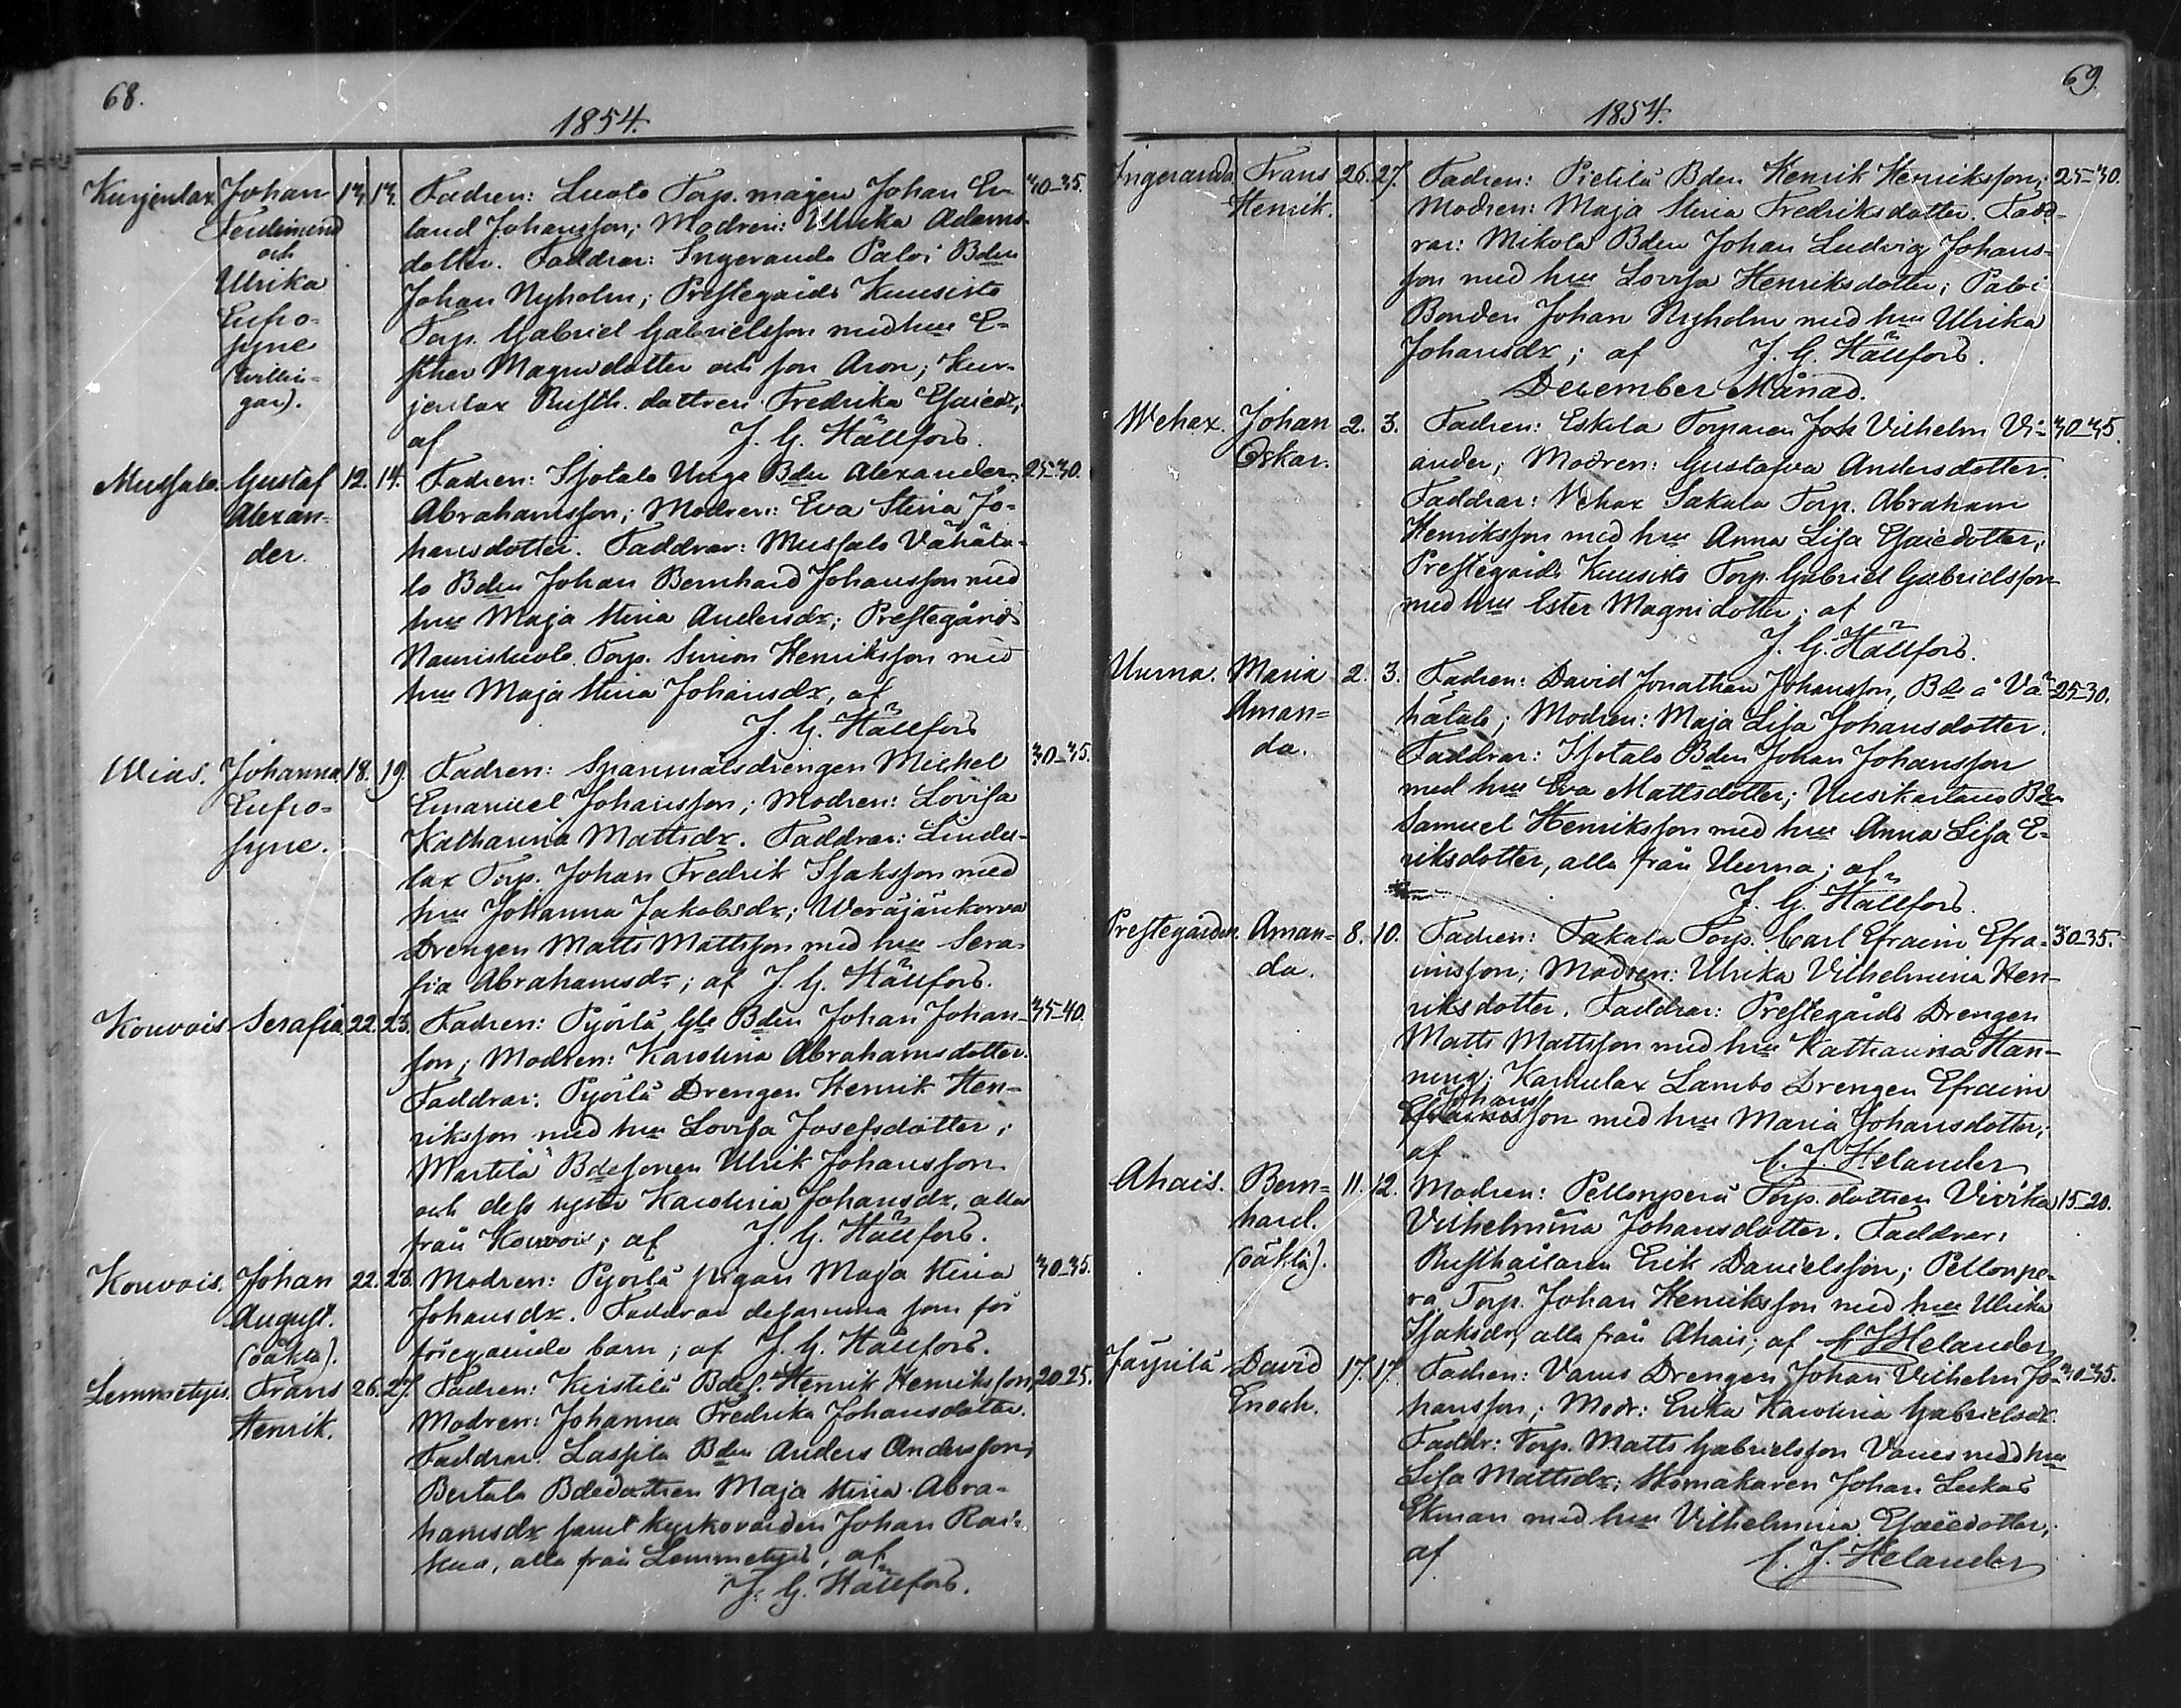 68.
1854.
Kurjenlax. Johan 13. 14. Fadren: Luoto Torp. mågen Johan Er- 30-35.
Ferdinand land Johansson; Modren: Ulrika Adams-
och dotter. Faddrar: Ingeranda Palvi Bden
Ulrika Johan Nyholm; Prestegårds Kuusisto
Eufro- Torp. Gabriel Gabrielsson med hu E-
syne ster Magnidotter och son Aron; Kur-
(tvillin- jenlax Rusth. dottren Fredrika Esaiedr;
gar). af J. G. Hällfors.
Mussalo. Gustaf 12. 14. Fadren: Isotalo Unge Bden Alexander 25-30.
Alexan- Abrahamsson; Modren: Eva Stina Jo-
der. hansdotter. Faddrar: Mussalo Vähäta-
lo Bden Johan Bernhard Johansson med
hu Maja Stina Andersdr; Prestegårds
Torp. Simon Henriksson med
hu Maja Stina Johansdr, af
J. G. Hällfors
Wias. Johanna 18. 19. Fadren: Spanmålsdrengen Michel 30-35.
Eufro- Emanuel Johansson; Modren: Lovisa
syne. Katharina Mattsdr. Faddrar: Lindu-
lax Torp. Johan Fredrik Isaksson med
hu Johanna Jakobsdr; Weräjänkorva
Drengen Matts Mattsson med hu Sera-
fia Abrahamsdr; af J. G. Hällfors.
Kouvois. Serafia. 22. 23. Fadren: Pyörlä Gle Bden Johan Johan- 35-40.
son; Modren: Karolina Abrahamsdotter.
Faddrar: Pyörlä Drengen Henrik Hen-
riksson med hu Lovisa Josefsdotter;
Martila Bdesonen Ulrik Johansson
och dess syster Karolina Johansdr, alla
från Kouvois; af J. G. Hällfors.
Kouvois. Johan 22. 23. Modren: Pyörlä pigan Maja Stina 30-35.
August. Johansdr. Faddrar desamma som för
(oäkta). föregående barn; af J. G. Hällfors.
Lemmetyis. Frans 26. 27. Fadren: Keistilä Bdes. Henrik Henriksson; 20-25.
Henrik. Modren: Johanna Fredrika Johansdotter.
Faddrar: Laspila Bden Anders Andersson;
Bertala Bdedottren Maja Stina Abra-
hamsdr samt kyrkovärden Johan Rai-
kua, alla från Lemmetyis, af
J. G. Hällfors.
69.
1854.
Ingeranda Frans 26. 27. Fadren: Pietilä Bden Henrik Henriksson; 25-30.
Henrik. Modren: Maja Stina Fredriksdotter. Fadd-
rar: Mikola Bden Johan Ludvig Johans-
son med hu Lovisa Henriksdotter; Palvi
Bonden Johan Nyholm med hu Ulrika
Johansdr; af J. G. Hällfors.
December Månad.
Wehax. Johan 2. 3. Fadren: Eskola Torparen Joh Vilhelm Vi- 30-35.
Oskar. ander; Modren: Gustafva Andersdotter.
Faddrar: Vehax Sakala Torp. Abraham
Henriksson med hu Anna Lisa Esaiedotter;
Prestegårds Kuusisto Torp. Gabriel Gabrielsson
med hu Ester Magnidotter; af
J. G. Hällfors.
Uurna. Maria 2. 3. Fadren: David Jonathan Johansson, Bde å Vä- 25-30.
Aman- hätalo; Modren: Maja Lisa Johansdotter.
da. Faddrar: Isotalo Bden Johan Johansson
med hu Eva Mattsdotter; Uusikartano Bden
Samuel Henriksson med hu Anna Lisa E-
riksdotter, alla från Uurna; af
J. G. Hällfors.
Prestegården. Aman- 8. 10. Fadren: Takala Torp. Carl Efraim Efra- 30-35.
da. imsson; Modren: Ulrika Vilhelmina Hen-
riksdotter. Faddrar: Prestegårds Drengen
Matts Mattsson med hu Katharina Han-
ning; Kamulax Lambo Drengen Efraim
Johans
Efraimsson med hu Maria Johansdotter;
af C. J. Helander
Ahais. Bern- 11. 12. Modren: Pellonperä Torp. dottren Vivika 15-20.
hard. Vilhelmina Johansdotter. Faddrar:
(oäkta). Rusthållaren Erik Danielsson; Pellonpe-
rä Torp. Johan Henriksson med hu Ulrika
Isaksdr, alla från Ahais; af C. J. Helander
Jäyrilä David 17. 17. Fadren: Vanes Drengen Johan Vilhelm Jo- 30-35.
Enoch. hansson; Modr: Erika Karolina Gabrielsdr.
Faddr: Torp. Matts Gabrielsson Vanes med hu
Lisa Mattsdr; Skomakaren Johan Lukas
Ekman med hu Vilhelmina Esaiedotter;
af C. J. Helander